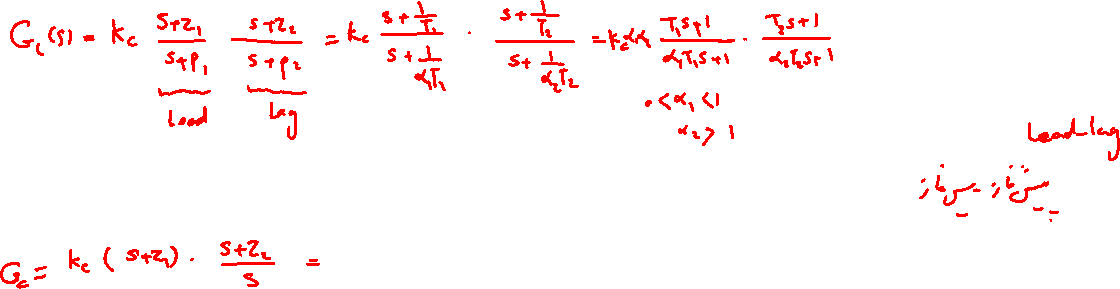 G_c(s) = k_c (s+z_1)/(s+p_1) (s+z_2)/(s+p_2) = k_c (s+1/T_1)/(s+1/(α_1T_1)) · (s+1/T_2)/(s+1/(α_2T_2)) = k_c α α (T_1s+1)/(α_1T_1s+1) · (T_2s+1)/(α_2T_2s+1)
lead lag
0<α_1<1
α_2>1
lead lag
G_c = k_c (s+z_1) · (s+z_2)/s =